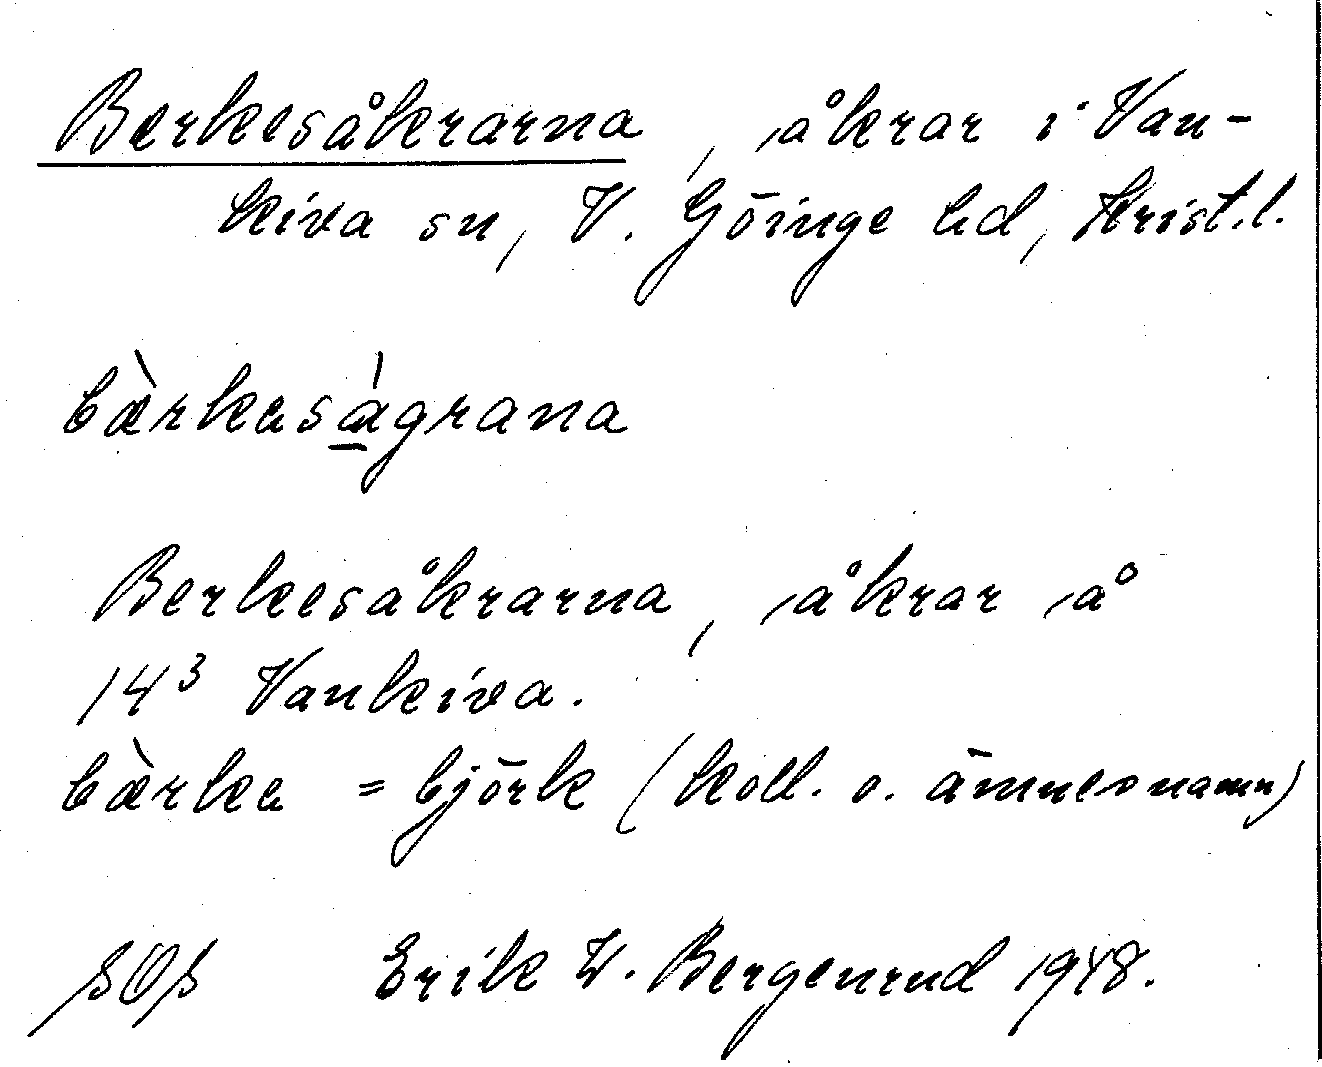 Berkesåkrarna, åkrar i Van-
kiva sn, V. Göinge hd, Krist.l.
bæ̀rkasǻ̱grana
Berkesåkrarna, åkrar å
14³ Vankiva.
bæ̀rka = björk (koll. o. ämnesnamn)
Erik W. Bergenrud 1948.